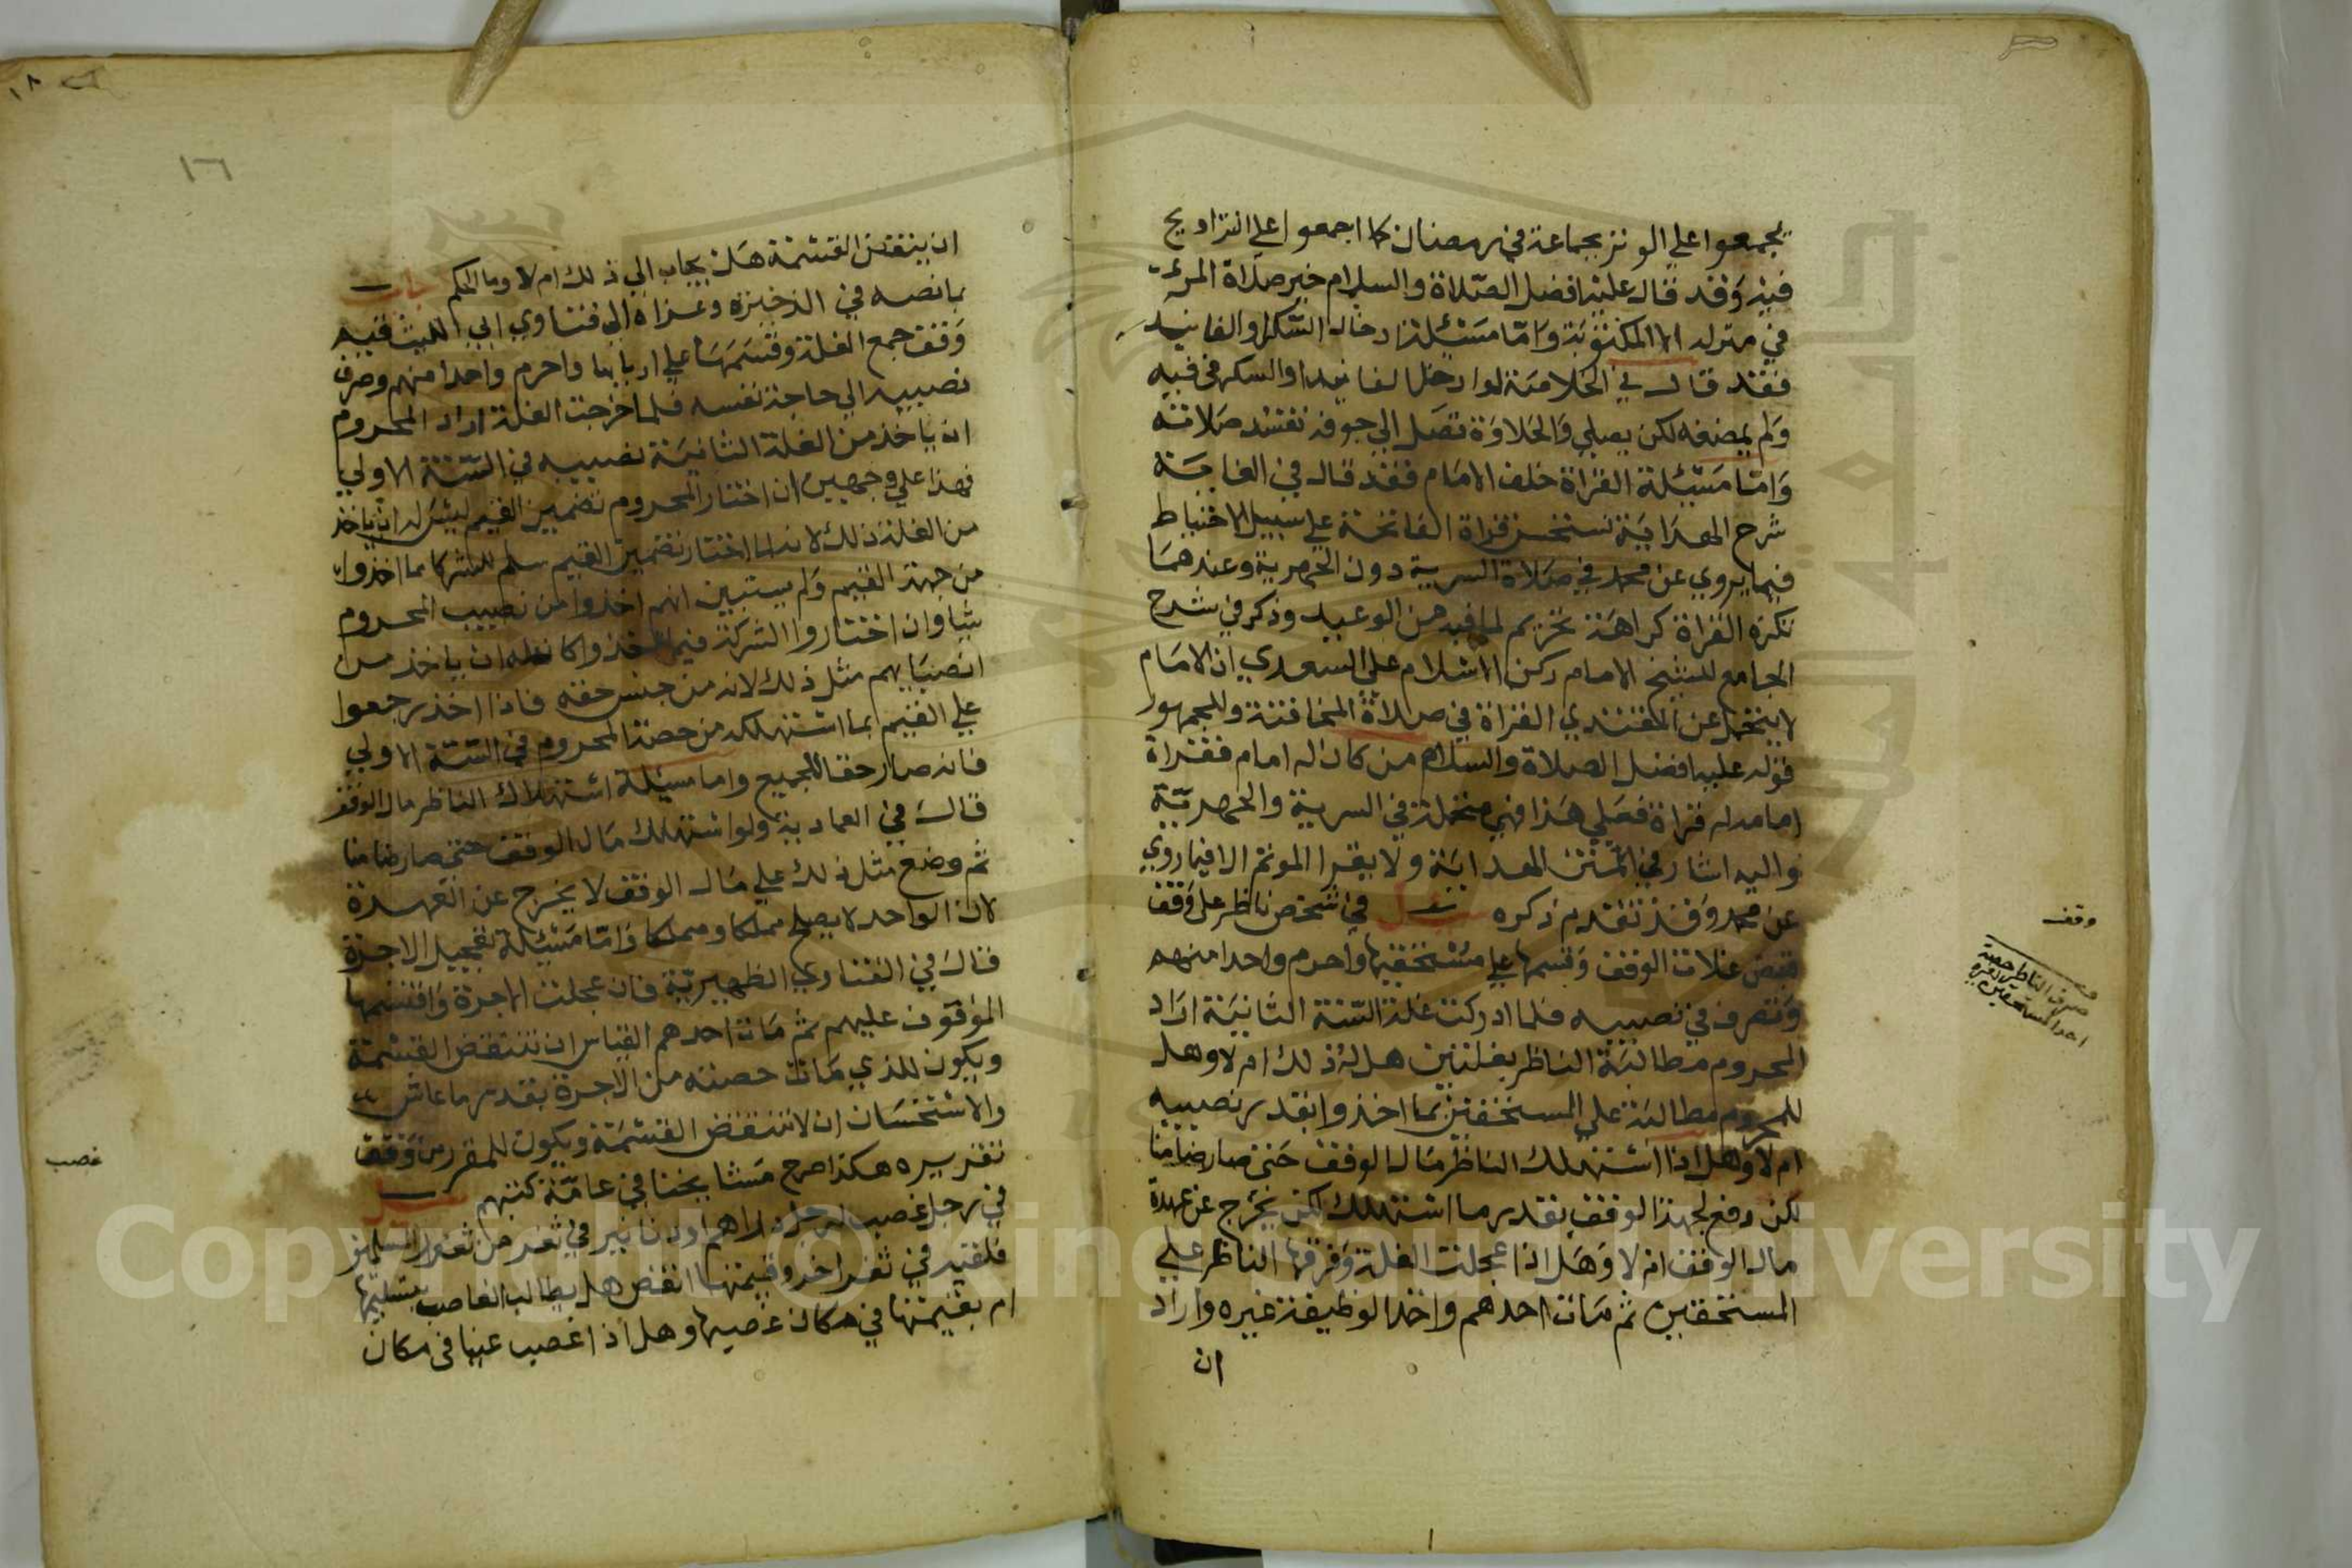 يجمعوا علي الوتر بجماعة في رمضان كما اجمعوا علي التراويح
فيه وقد قال عليه افضل الصلاة والسلام خير صلاة المرء
في منزله الا المكتوبة واما مسئلة ادخال السكر والفانيد
فقد قال في الخلاصة لو ادخل الفانيد او السكر في فيه
ولم يمضغه لكن يصلي والحلاوة تصل الي جوفه تفسد صلاته
واما مسئلة القراة خلف الامام فقد قال في الغاية
شرح الهداية تستحسن قراة الفاتحة علي سبيل الاحتياط
فيما يروي عن محمد في صلاة السرية دون الجهرية وعندهما
تكره القراة كراهة تحريم لما فيه من الوعيد وذكر في شرح
الجامع للشيخ الامام ركن الاسلام علي السعدي ان الامام
لا يتحمل عن المقتدي القراة في صلاة المخافتة وللجمهور
قوله عليه افضل الصلاة والسلام من كان له امام فقراة
امامه له قراة فعلي هذا فهي متحملة في السرية والجهرية
واليه اشار في المتن الهداية ولا يقرا الموتم الا فيما روي
عن محمد وقد تقدم ذكره سئل في شخص ناظر علي وقف
قبض غلات الوقف وقسمها علي مستحقيها واحرم واحدا منهم
وتصرف في نصيبه فلما ادركت غلة السنة الثانية اراد
المحروم مطالبة الناظر بغلتين هل له ذلك ام لا وهل
للمحروم مطالبة علي المستحقين بما اخذوا بقدر نصيبه
ام لا وهل اذا استهلك الناظر مال الوقف حتي صار ضامنا
لكن دفع لجهة الوقف بقدر ما استهلك لكن يخرج عن عهدة
مال الوقف ام لا وهل اذا عجلت الغلة وفرقها الناظر علي
المستحقين ثم مات احدهم واخذ الوظيفة غيره واراد
ان
وقف
صرف الناظر حصة
احد المستحقين
١٦
ان ينقض القسمة هل يجاب الي ذلك ام لا وما الحكم اجاب
بما نصه في الذخيرة وعزاه الي فتاوي ابي الليث فيه
وقف جمع الغلة وقسمها علي اربابها واحرم واحدا منهم وصرف
نصيبه الي حاجة نفسه فلما خرجت الغلة اراد المحروم
ان ياخذ من الغلة الثانية نصيبه في السنة الاولي
فهذا علي وجهين ان اختار المحروم تضمين القيم ليس له ان ياخذ
من الغلة ذلك لانه لما اختار تضمين القيم سلم للشركا ما اخذوا
من جهة القيم ولم يستبين انهم اخذوا من نصيب المحروم
شيا وان اختاروا الشركة فيما اخذوا كان له ان ياخذ من
انصبايهم مثل ذلك لانه من جنس حقه فاذا اخذ رجعوا
علي القيم بما استهلكه من حصة المحروم في السنة الاولي
فانه صار حقا للجميع واما مسيلة استهلاك الناظر مال الوقف
قال في العمادية ولو استهلك مال الوقف حتي صار ضامنا
ثم وضع مثل ذلك علي مال الوقف لا يخرج عن العهدة
لان الواحد لا يصلح مملكا ومملكا واما مسئلة تعجيل الاجرة
قال في الفتاوي الظهيرية فان عجلت الاجرة واقتسمها
الموقوف عليهم ثم مات احدهم القياس ان تنتقض القسمة
ويكون للذي مات حصته من الاجرة بقدر ما عاش
والاستحسان ان لا تنتقض القسمة ويكون للمقرر من وقف
تقريره هكذا صرح مشايخنا في عامة كتبهم سئل
في رجل غصب لرجل دراهم او دنانير في ثغر من ثغور المسلمين
فلقيه في ثغر اخر وقيمتها انقص هل يطالب الغاصب بتسليمها
ام بقيمتها في مكان غصبها وهل اذا غصب عينا في مكان
غصب